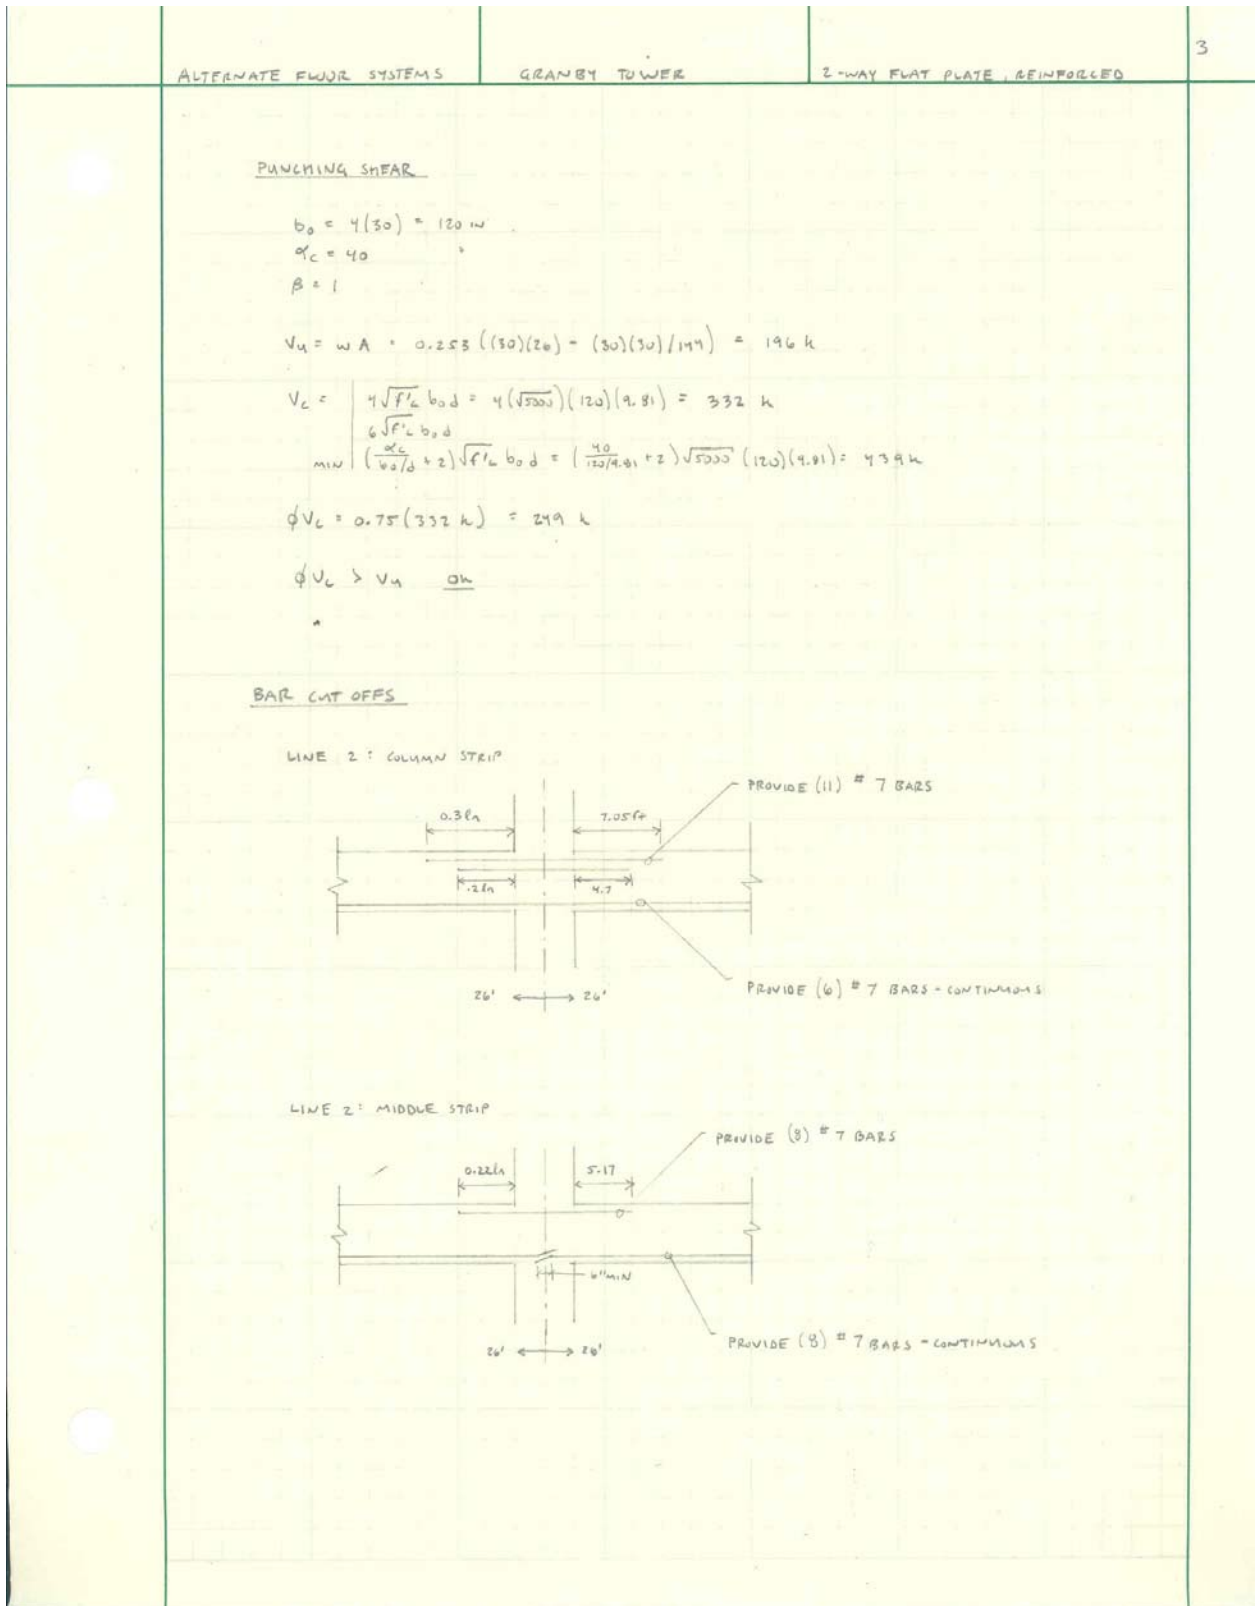 3
ALTERNATE FLOOR SYSTEMS GRANBY TOWER 2-WAY FLAT PLATE, REINFORCED
PUNCHING SHEAR
b₀ = 4(30) = 120 IN
α_c = 40
β = 1
V_u = wA = 0.253 ((30)(26) - (30)(30)/144) = 196 k
V_c = 4√f'_c b₀d = 4(√5000)(120)(9.81) = 332 k
6√f'_c b₀d
MIN (α_c/(b₀/d) + 2)√f'_c b₀d = (40/(120/9.81) + 2)√5000 (120)(9.81) = 439 k
φV_c = 0.75(332 k) = 249 k
φV_c > V_u OK
BAR CUT OFFS
LINE 2: COLUMN STRIP
PROVIDE (11) # 7 BARS
0.3ln 7.05ft
.2ln 4.7
PROVIDE (6) # 7 BARS - CONTINUOUS
26' 26'
LINE 2: MIDDLE STRIP
PROVIDE (8) # 7 BARS
0.22ln 5.17
6" MIN
PROVIDE (8) # 7 BARS - CONTINUOUS
26' 26'